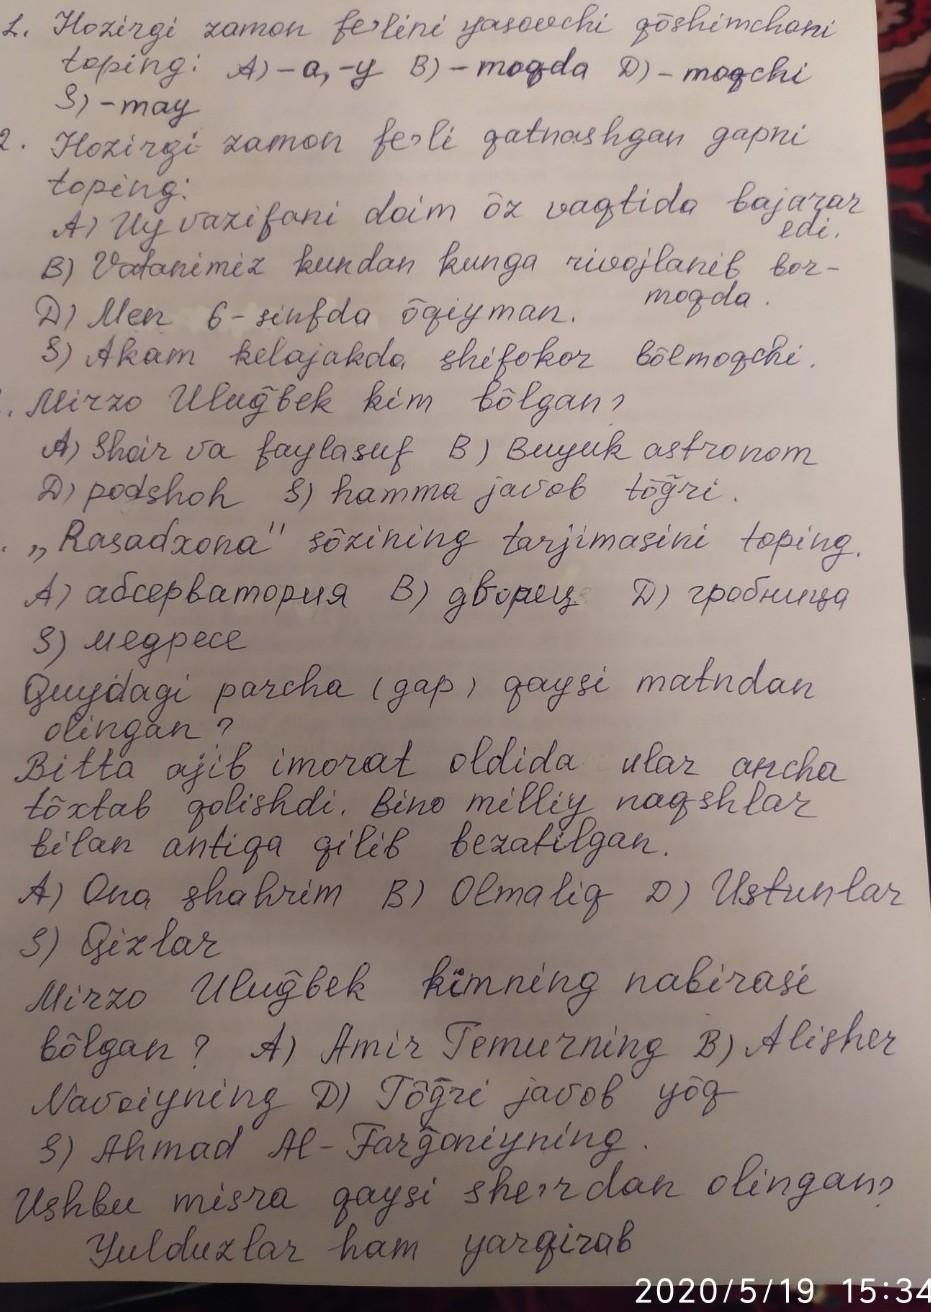 1. Hozirgi zamon fe'lini yasovchi qõshimchani
toping: A) -a, -y B) -moqda D) -moqchi
S) -may
2. Hozirgi zamon fe'li qatnashgan gapni
toping:
A) Uy vazifani doim õz vaqtida bajarar
edi.
B) Vatanimiz kundan kunga rivojlanib bor-
moqda.
D) Men 6-sinfda õqiyman.
S) Akam kelajakda shifokor bõlmoqchi.
. Mirzo Uluğbek kim bõlgan?
A) Shoir va faylasuf B) Buyuk astronom
D) podshoh S) hamma javob tõğri.
. „Rasadxona" sõzining tarjimasini toping.
A) абсерватория B) дворец D) гробница
S) медресе
Quydagi parcha (gap) qaysi matndan
olingan?
Bitta ajib imorat oldida ular ancha
tõxtab qolishdi. Bino milliy naqshlar
bilan antiqa qilib bezatilgan.
A) Ona shahrim B) Olmaliq D) Ustunlar
S) Qizlar
Mirzo Uluğbek kimning nabirasi
bõlgan? A) Amir Temurning B) Alisher
Navoiyning D) Tõğri javob yõq
S) Ahmad Al-Farğoniyning.
Ushbu misra qaysi she'rdan olingan?
Yulduzlar ham yarqirab
2020/5/19 15:34